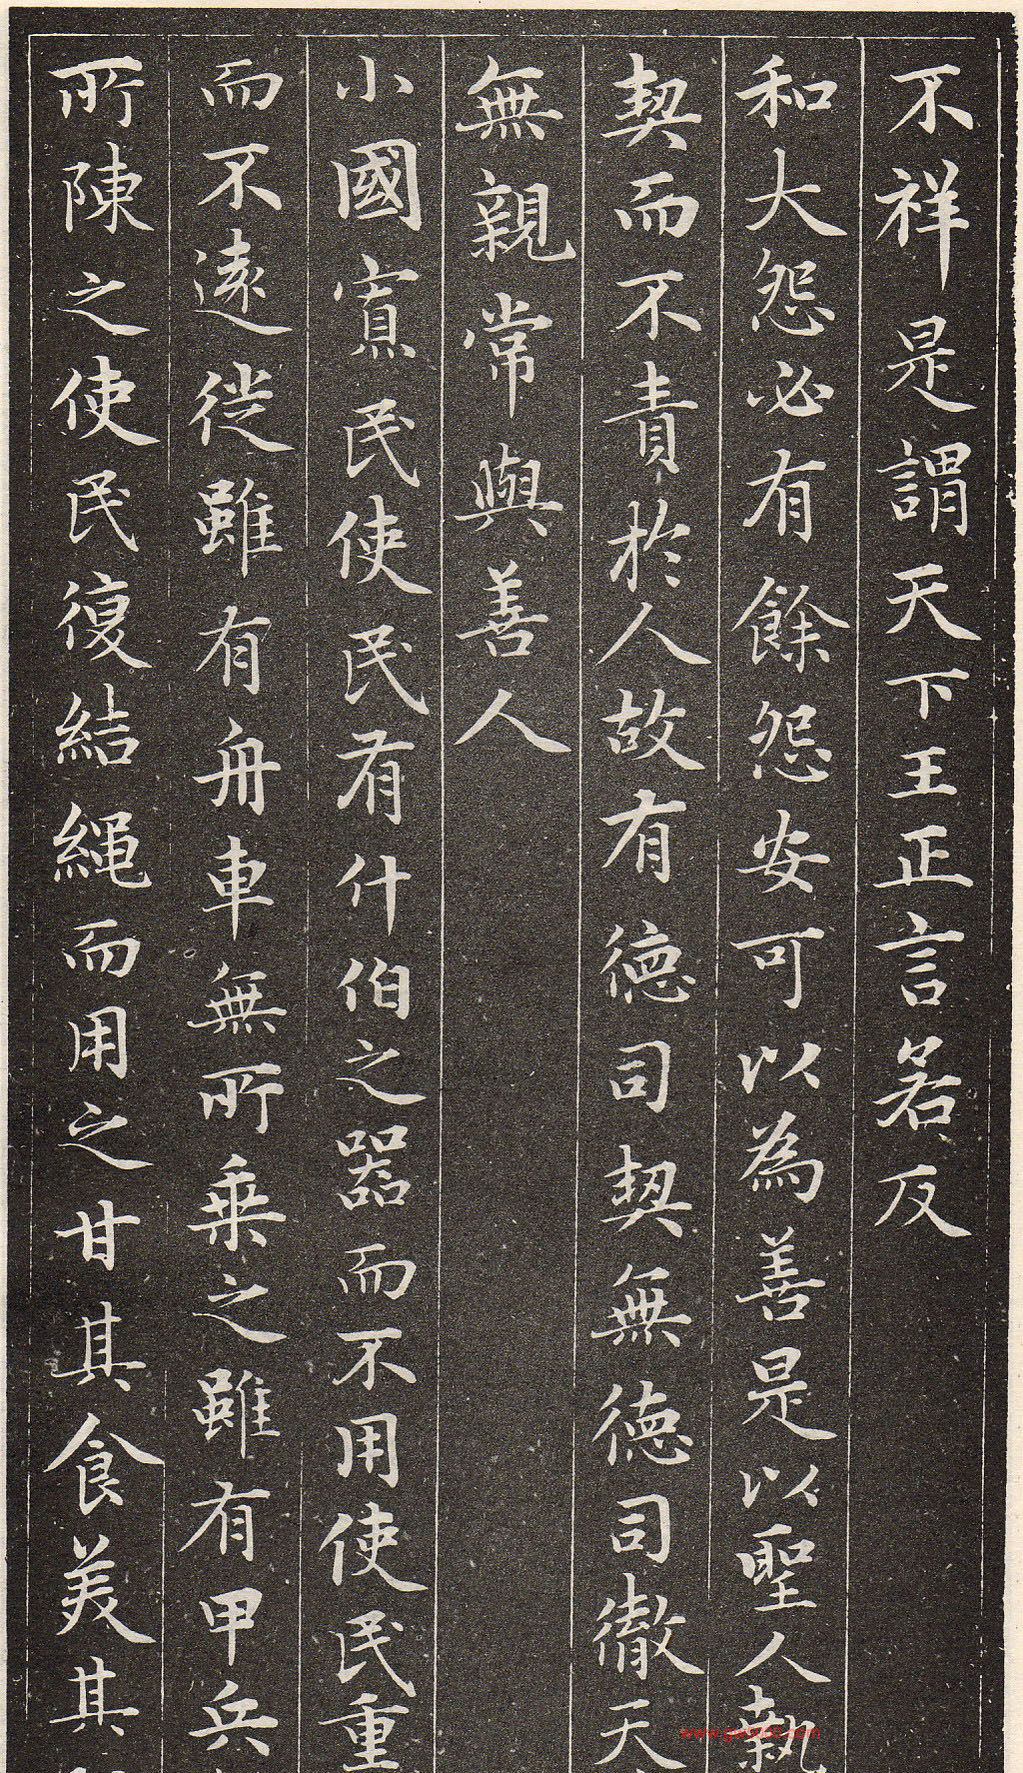 不祥是謂天下王正言若反
和大怨必有餘怨安可以為善是以聖人執
契而不責於人故有德司契無德司徹天
無親常與善人
小國寡民使民有什伯之器而不用使民重
而不遠徙雖有舟車無所乘之雖有甲兵
所陳之使民復結繩而用之甘其食美其